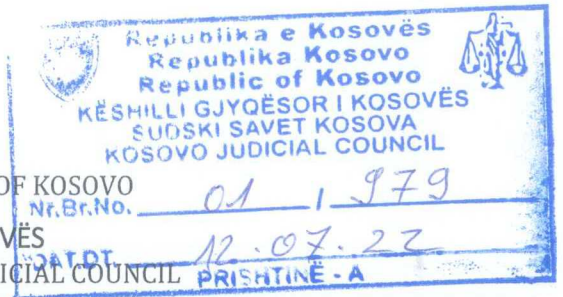 Republika e Kosovës
Republika Kosovo
Republic of Kosovo
KËSHILLI GJYQËSOR I KOSOVËS
SUDSKI SAVET KOSOVA
KOSOVO JUDICIAL COUNCIL
OF KOSOVO
Nr.Br.No. 01 / 979
VËS
DAT.DT. 12.07.22
ICIAL COUNCIL PRISHTINË - A